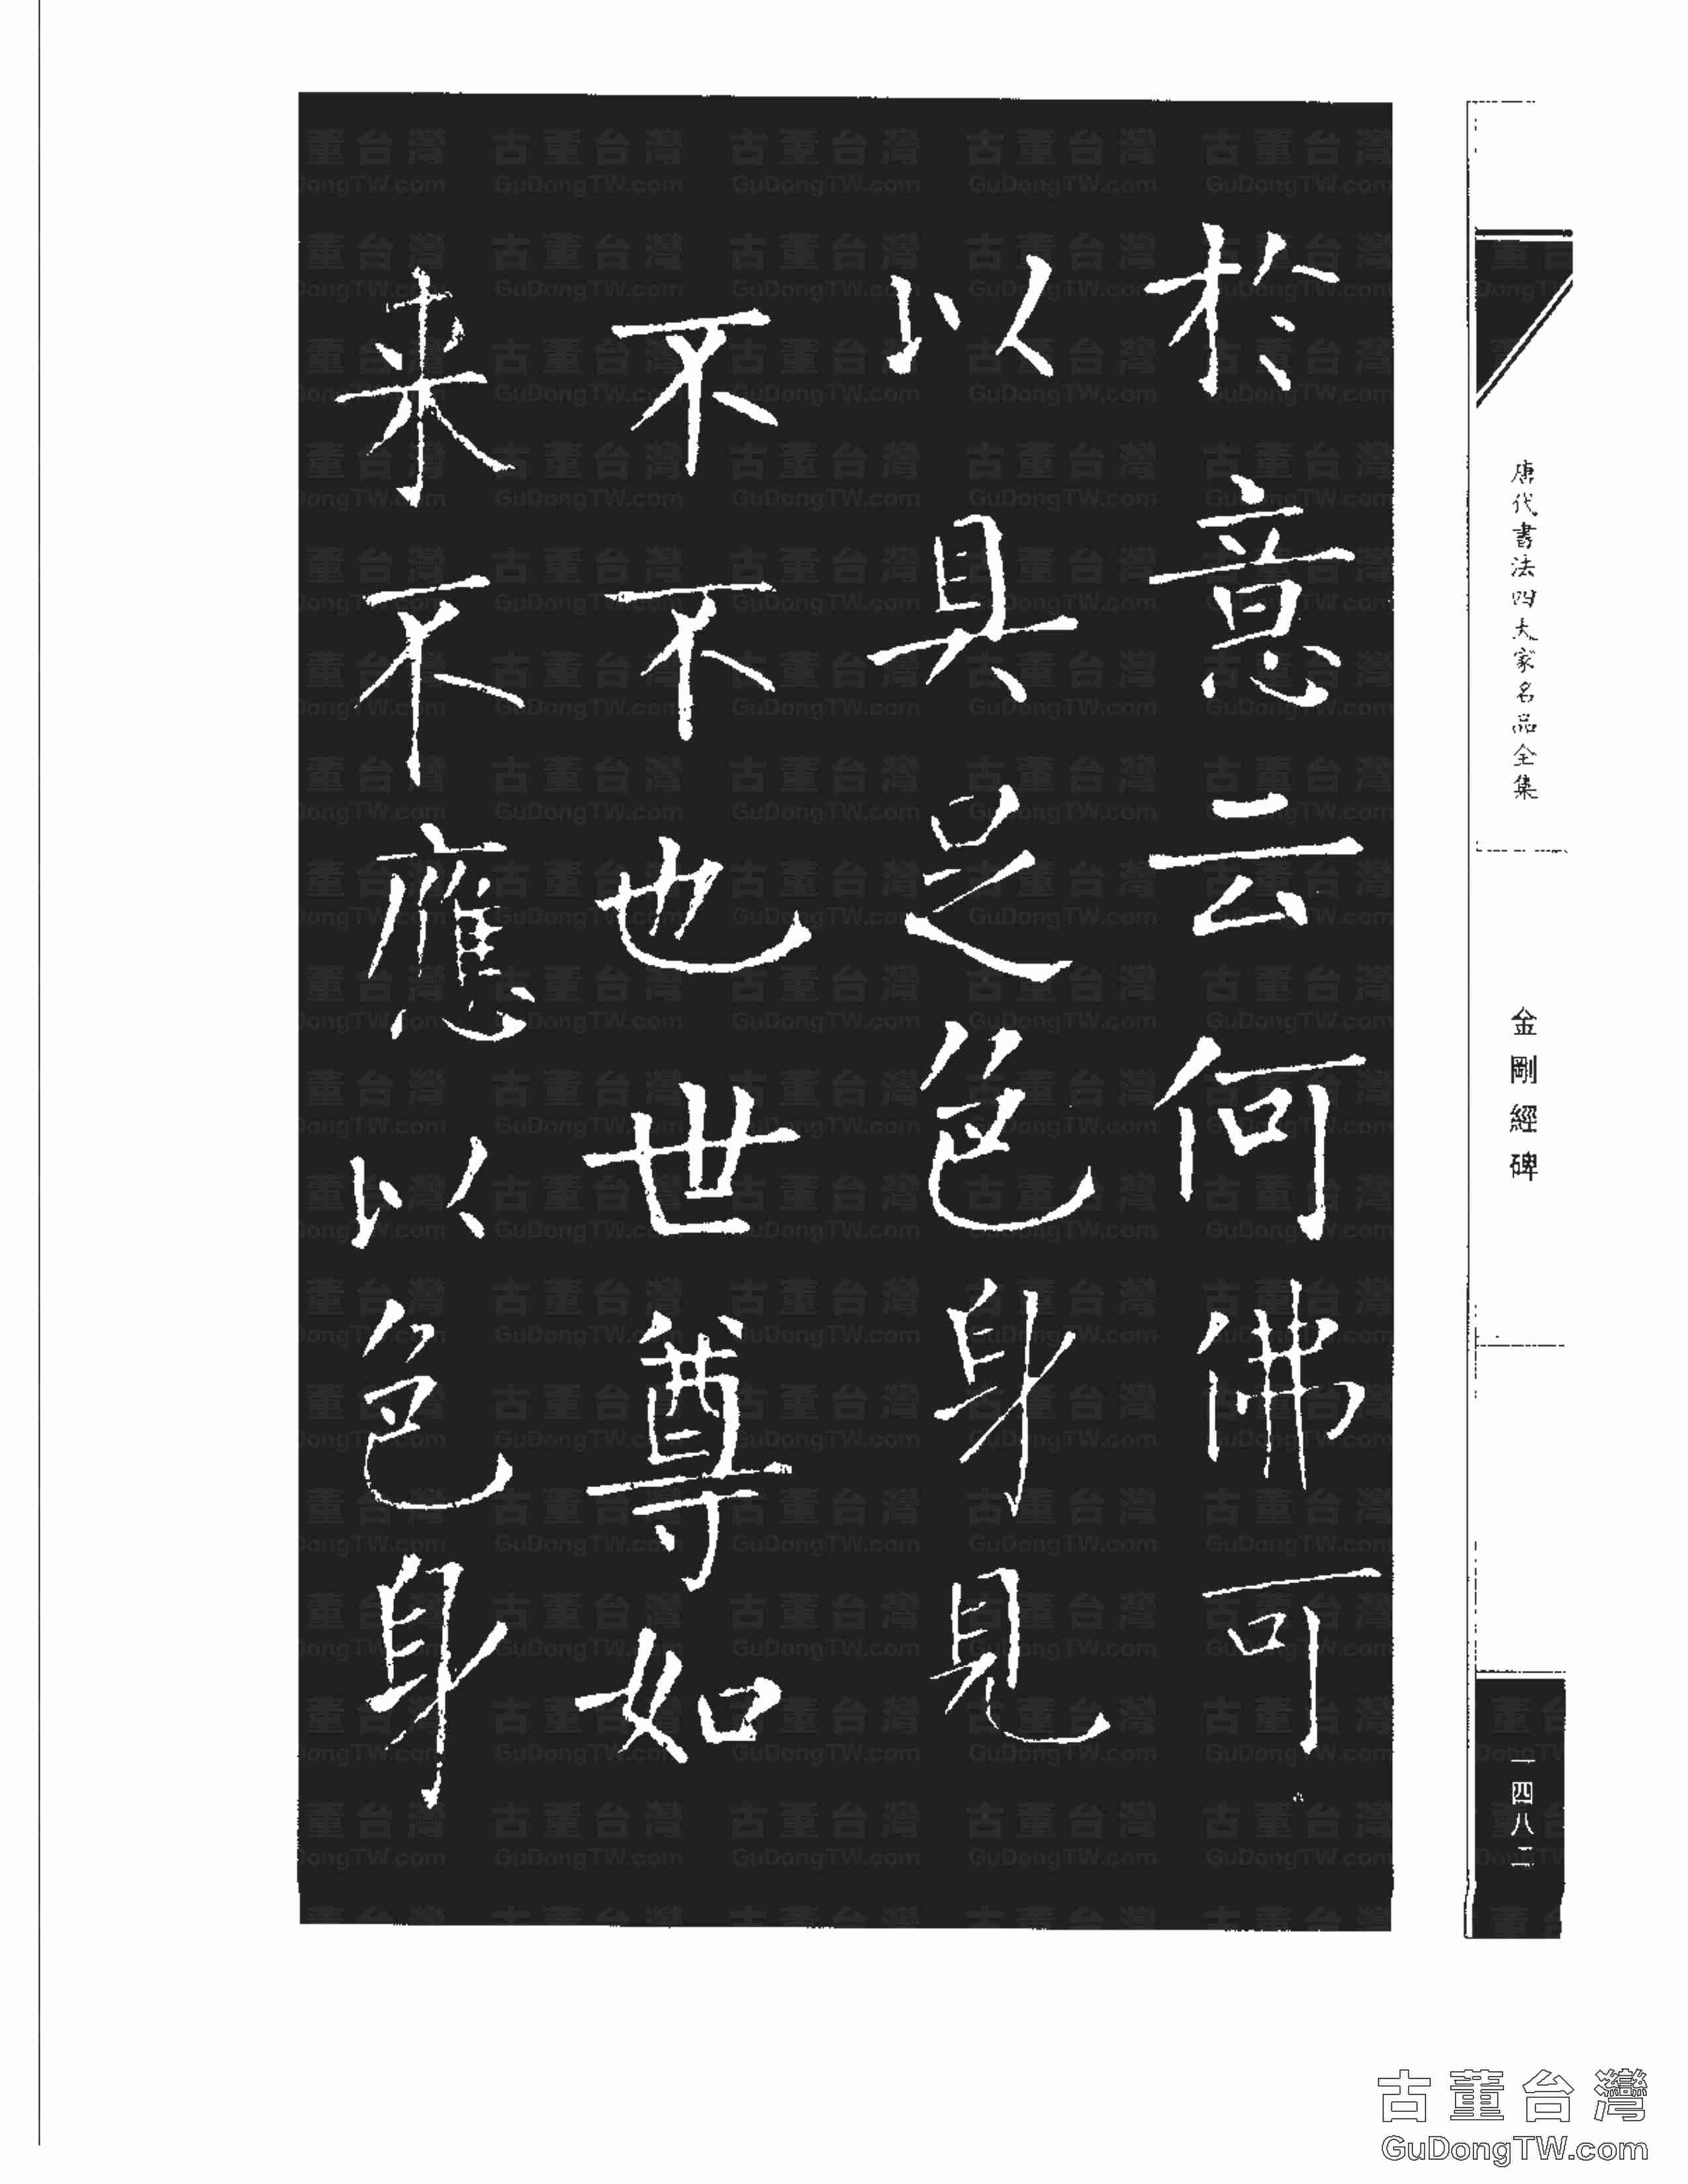 於意云何佛可
以具足色身見
不不也世尊如
来不應以色身
唐代書法四大家名品全集
金剛經碑
一四八二
古董台灣
GuDongTW.com